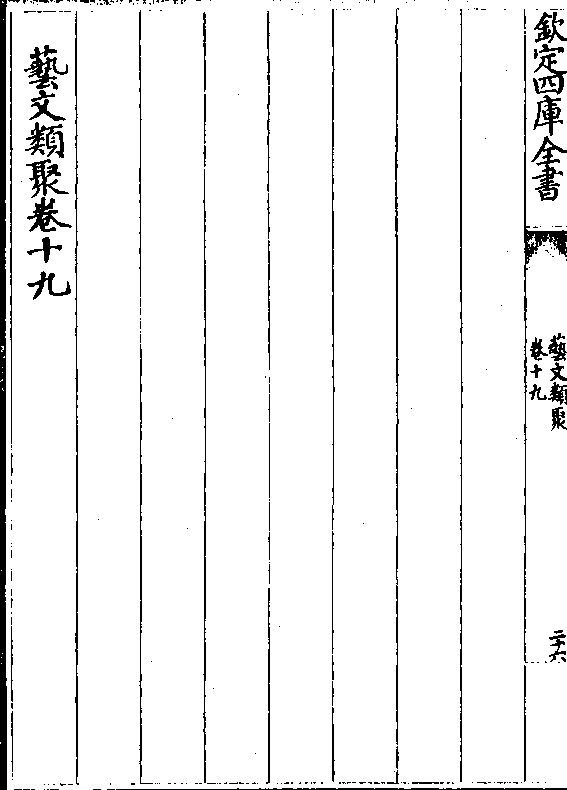 欽定四庫全書
藝文類聚
卷十九
二十六
藝文類聚卷十九